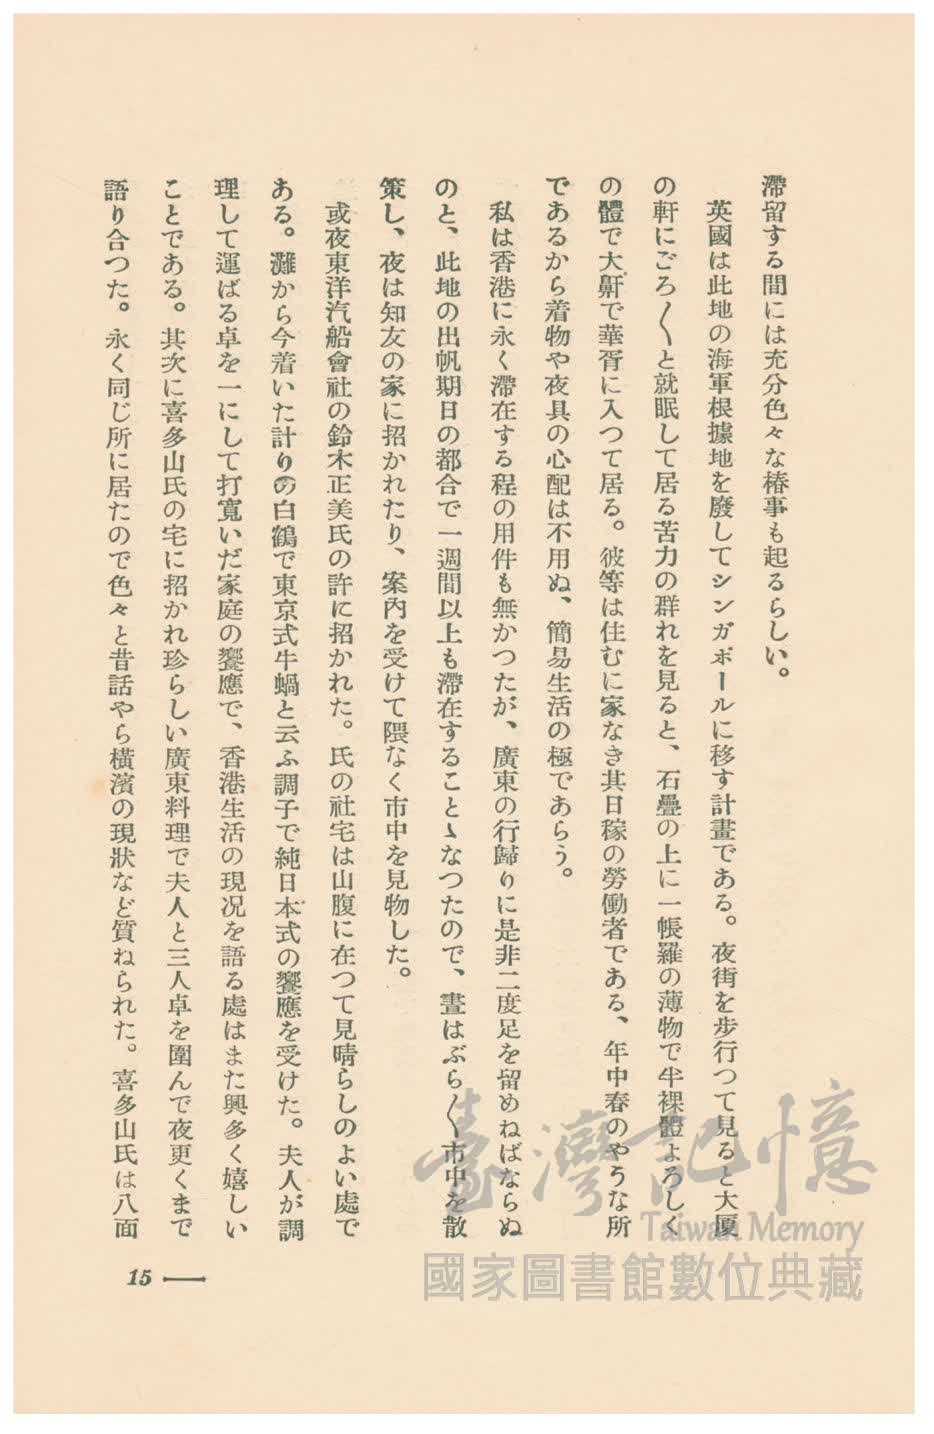 滯留する間には充分色々な椿事も起るらしい。
英國は此地の海軍根據地を廢してシンガポールに移す計畫である。夜街を步行つて見ると大厦
の軒にごろ〳〵と就眠して居る苦力の群れを見ると、石疊の上に一帳羅の薄物で半裸體よろしく
の體で大鼾で華胥に入つて居る。彼等は住むに家なき其日稼の勞働者である、年中春のやうな所
であるから着物や夜具の心配は不用ぬ、簡易生活の極であらう。
私は香港に永く滯在する程の用件も無かつたが、廣東の行歸りに是非二度足を留めねばならぬ
のと、此地の出帆期日の都合で一週間以上も滯在することゝなつたので、晝はぶら〳〵市中を散
策し、夜は知友の家に招かれたり、案內を受けて隈なく市中を見物した。
或夜東洋汽船會社の鈴木正美氏の許に招かれた。氏の社宅は山腹に在つて見晴らしのよい處で
ある。灘から今着いた計りの白鶴で東京式牛鍋と云ふ調子で純日本式の饗應を受けた。夫人が調
理して運ばる卓を一にして打寬いだ家庭の饗應で、香港生活の現況を語る處はまた興多く嬉しい
ことである。其次に喜多山氏の宅に招かれ珍らしい廣東料理で夫人と三人卓を圍んで夜更くまで
語り合つた。永く同じ所に居たので色々と昔話やら橫濱の現狀など質ねられた。喜多山氏は八面
15
臺灣記憶
Taiwan Memory
國家圖書館數位典藏